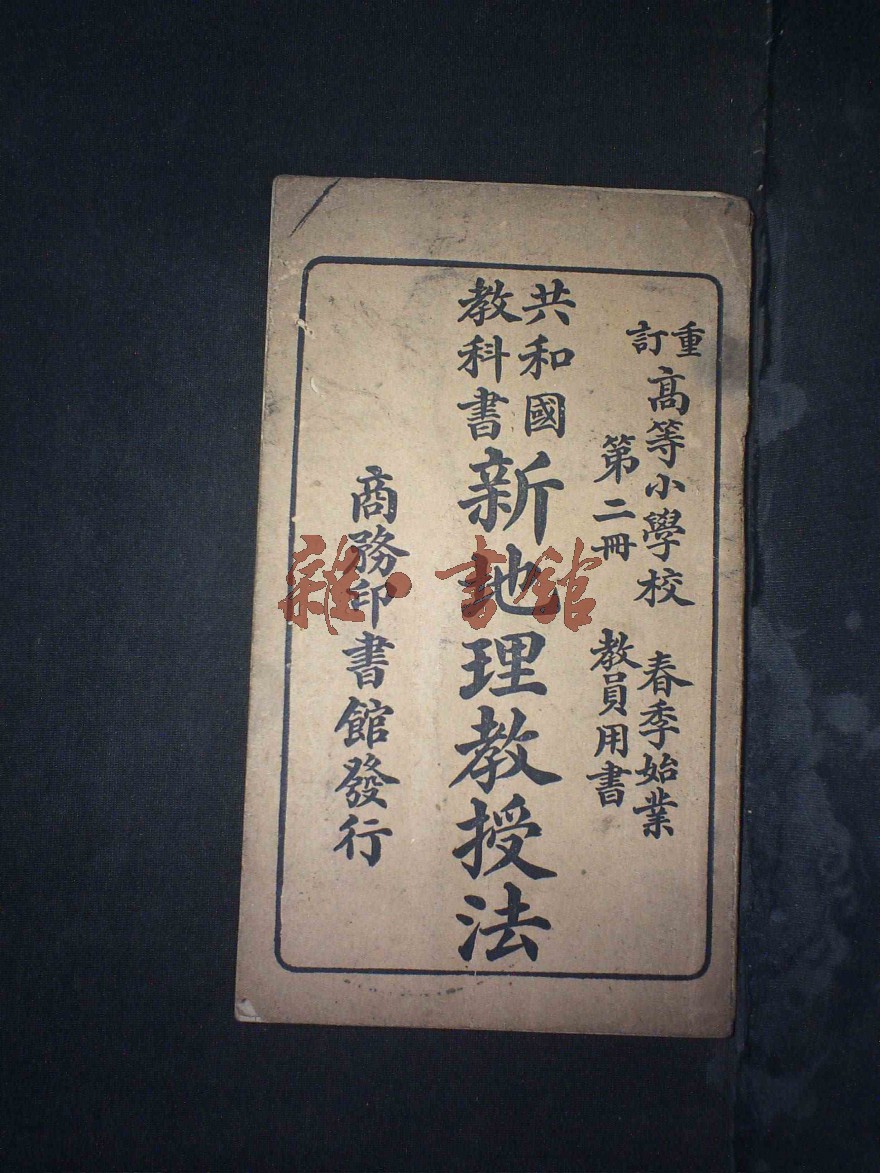 重訂
高等小學校
春季始業
第二冊
教員用書
共和國
教科書
新地理教授法
商務印書館發行
雜·書館